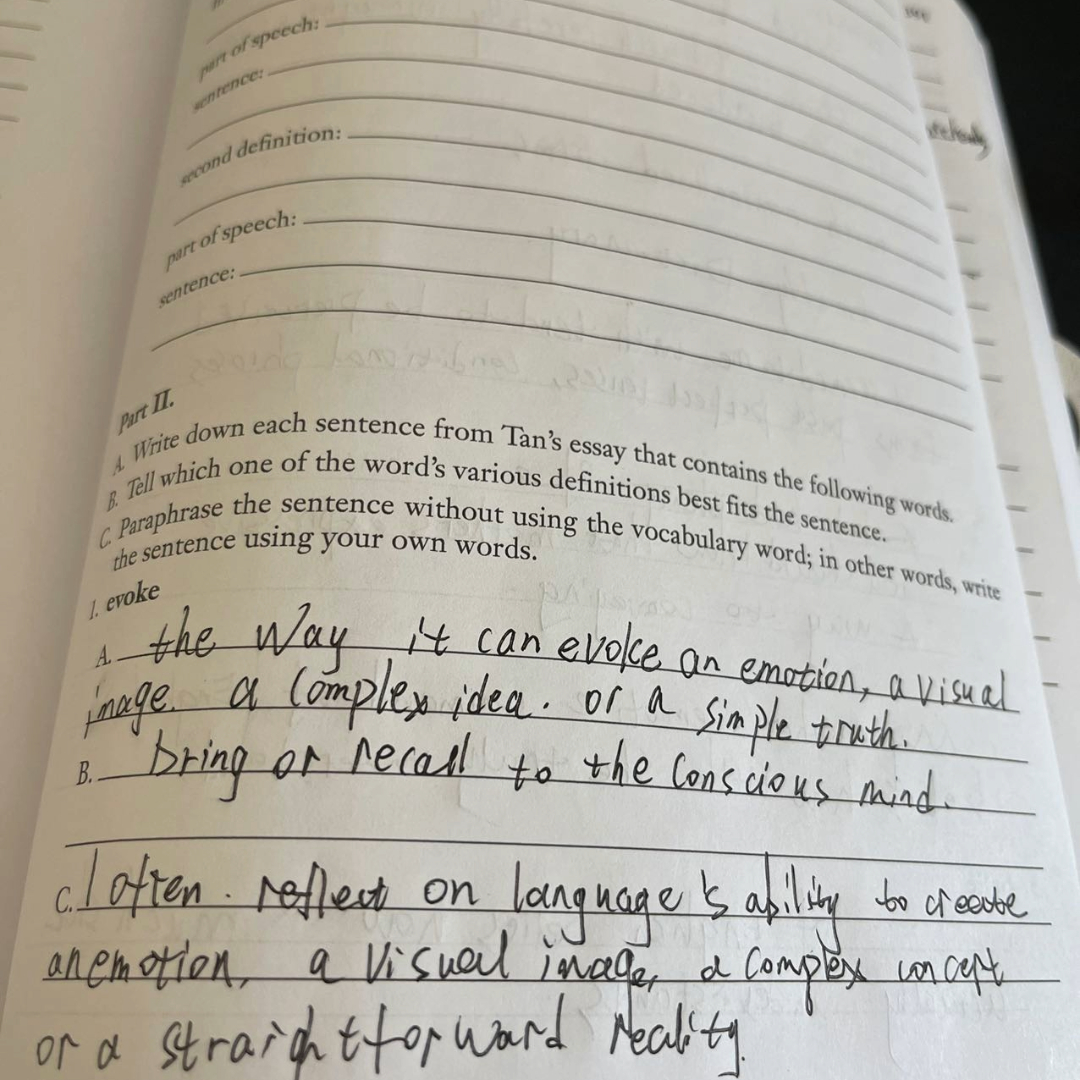 part of speech:
sentence:
second definition:
part of speech:
sentence:
Part II.
A. Write down each sentence from Tan's essay that contains the following words.
B. Tell which one of the word's various definitions best fits the sentence.
C. Paraphrase the sentence without using the vocabulary word; in other words, write
the sentence using your own words.
1. evoke
A. the way it can evoke an emotion, a visual
image. a complex idea. or a simple truth.
B. bring or recall to the conscious mind.
C. I often. reflect on language's ability to create
an emotion, a visual image, a complex concept
or a straightforward reality.